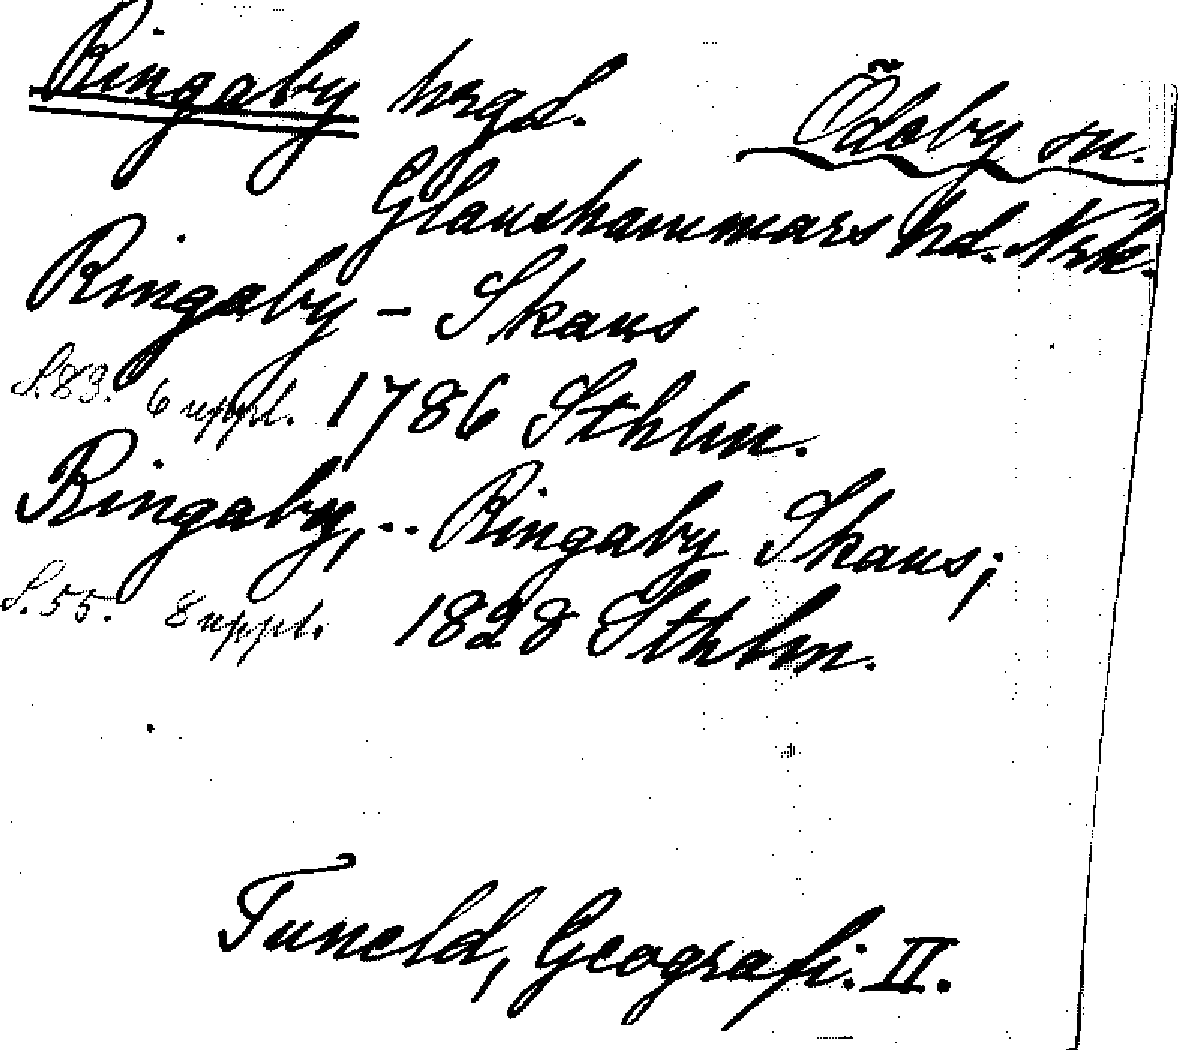 Ringaby hrgd. Ödeby sn.
Glanshammars hd. Nrk.
Ringaby - Skans
S.83. 6 uppl. 1786 Sthlm.
Ringaby, .. Ringaby Skans;
S.55. 8 uppl. 1828 Sthlm.
Tuneld, Geografi. II.